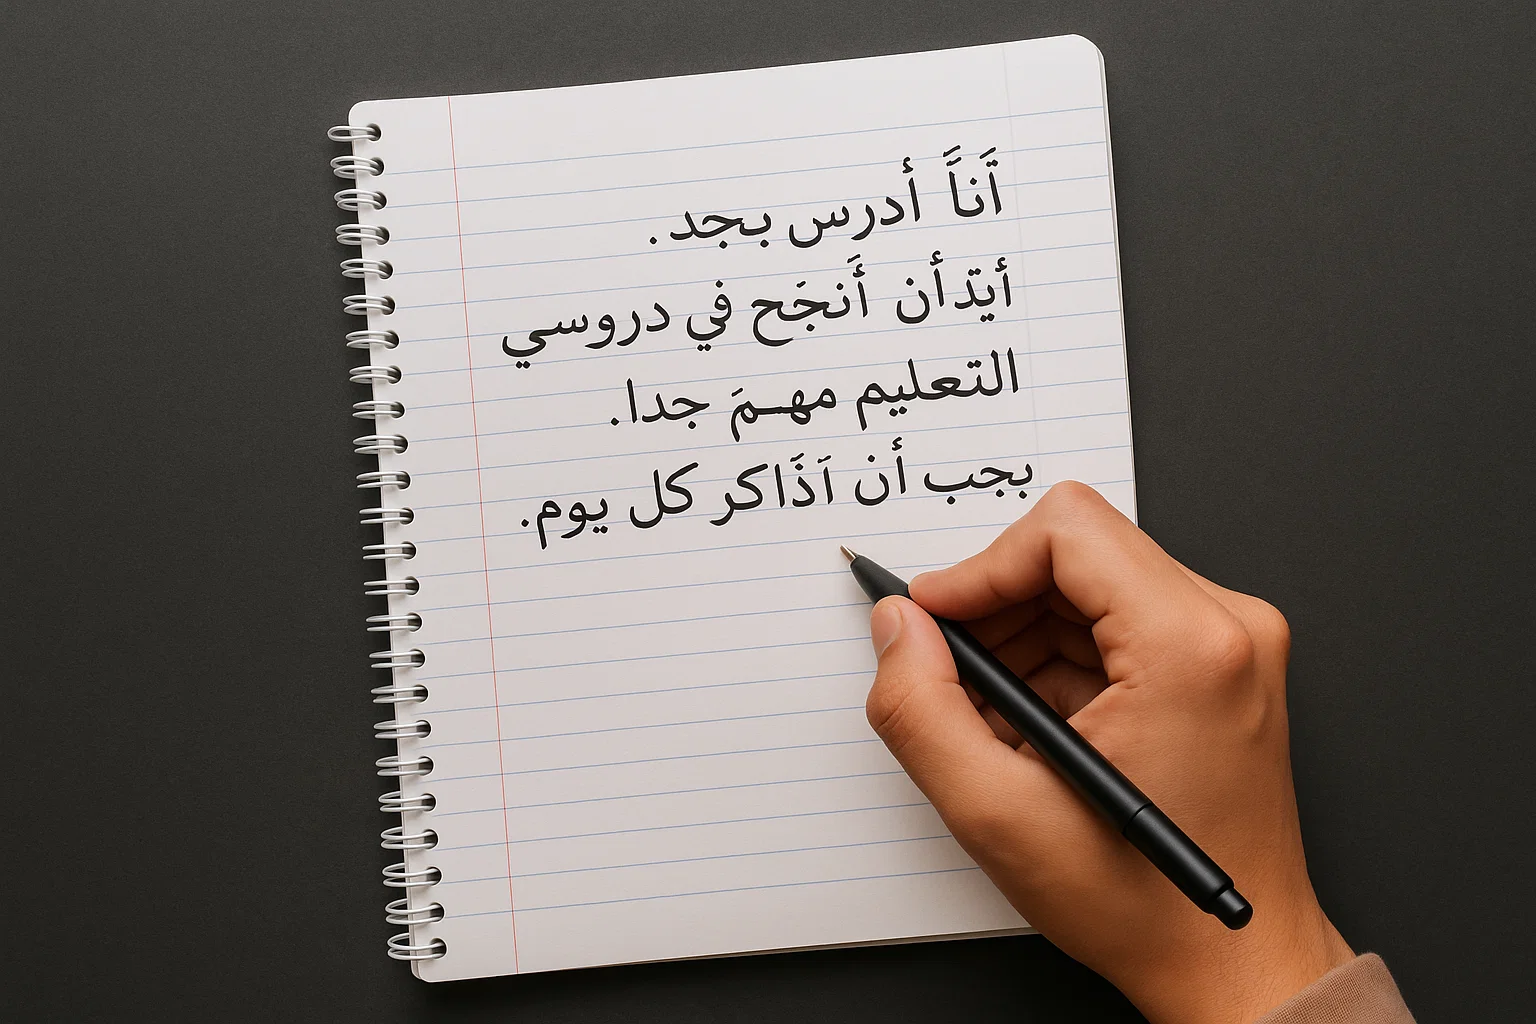 أَناَّ أدرس بجد.
أيدأن أَنجَح في دروسي
التعليم مهـمَ جدا.
بجب أن اَذَاكر كل يوم.